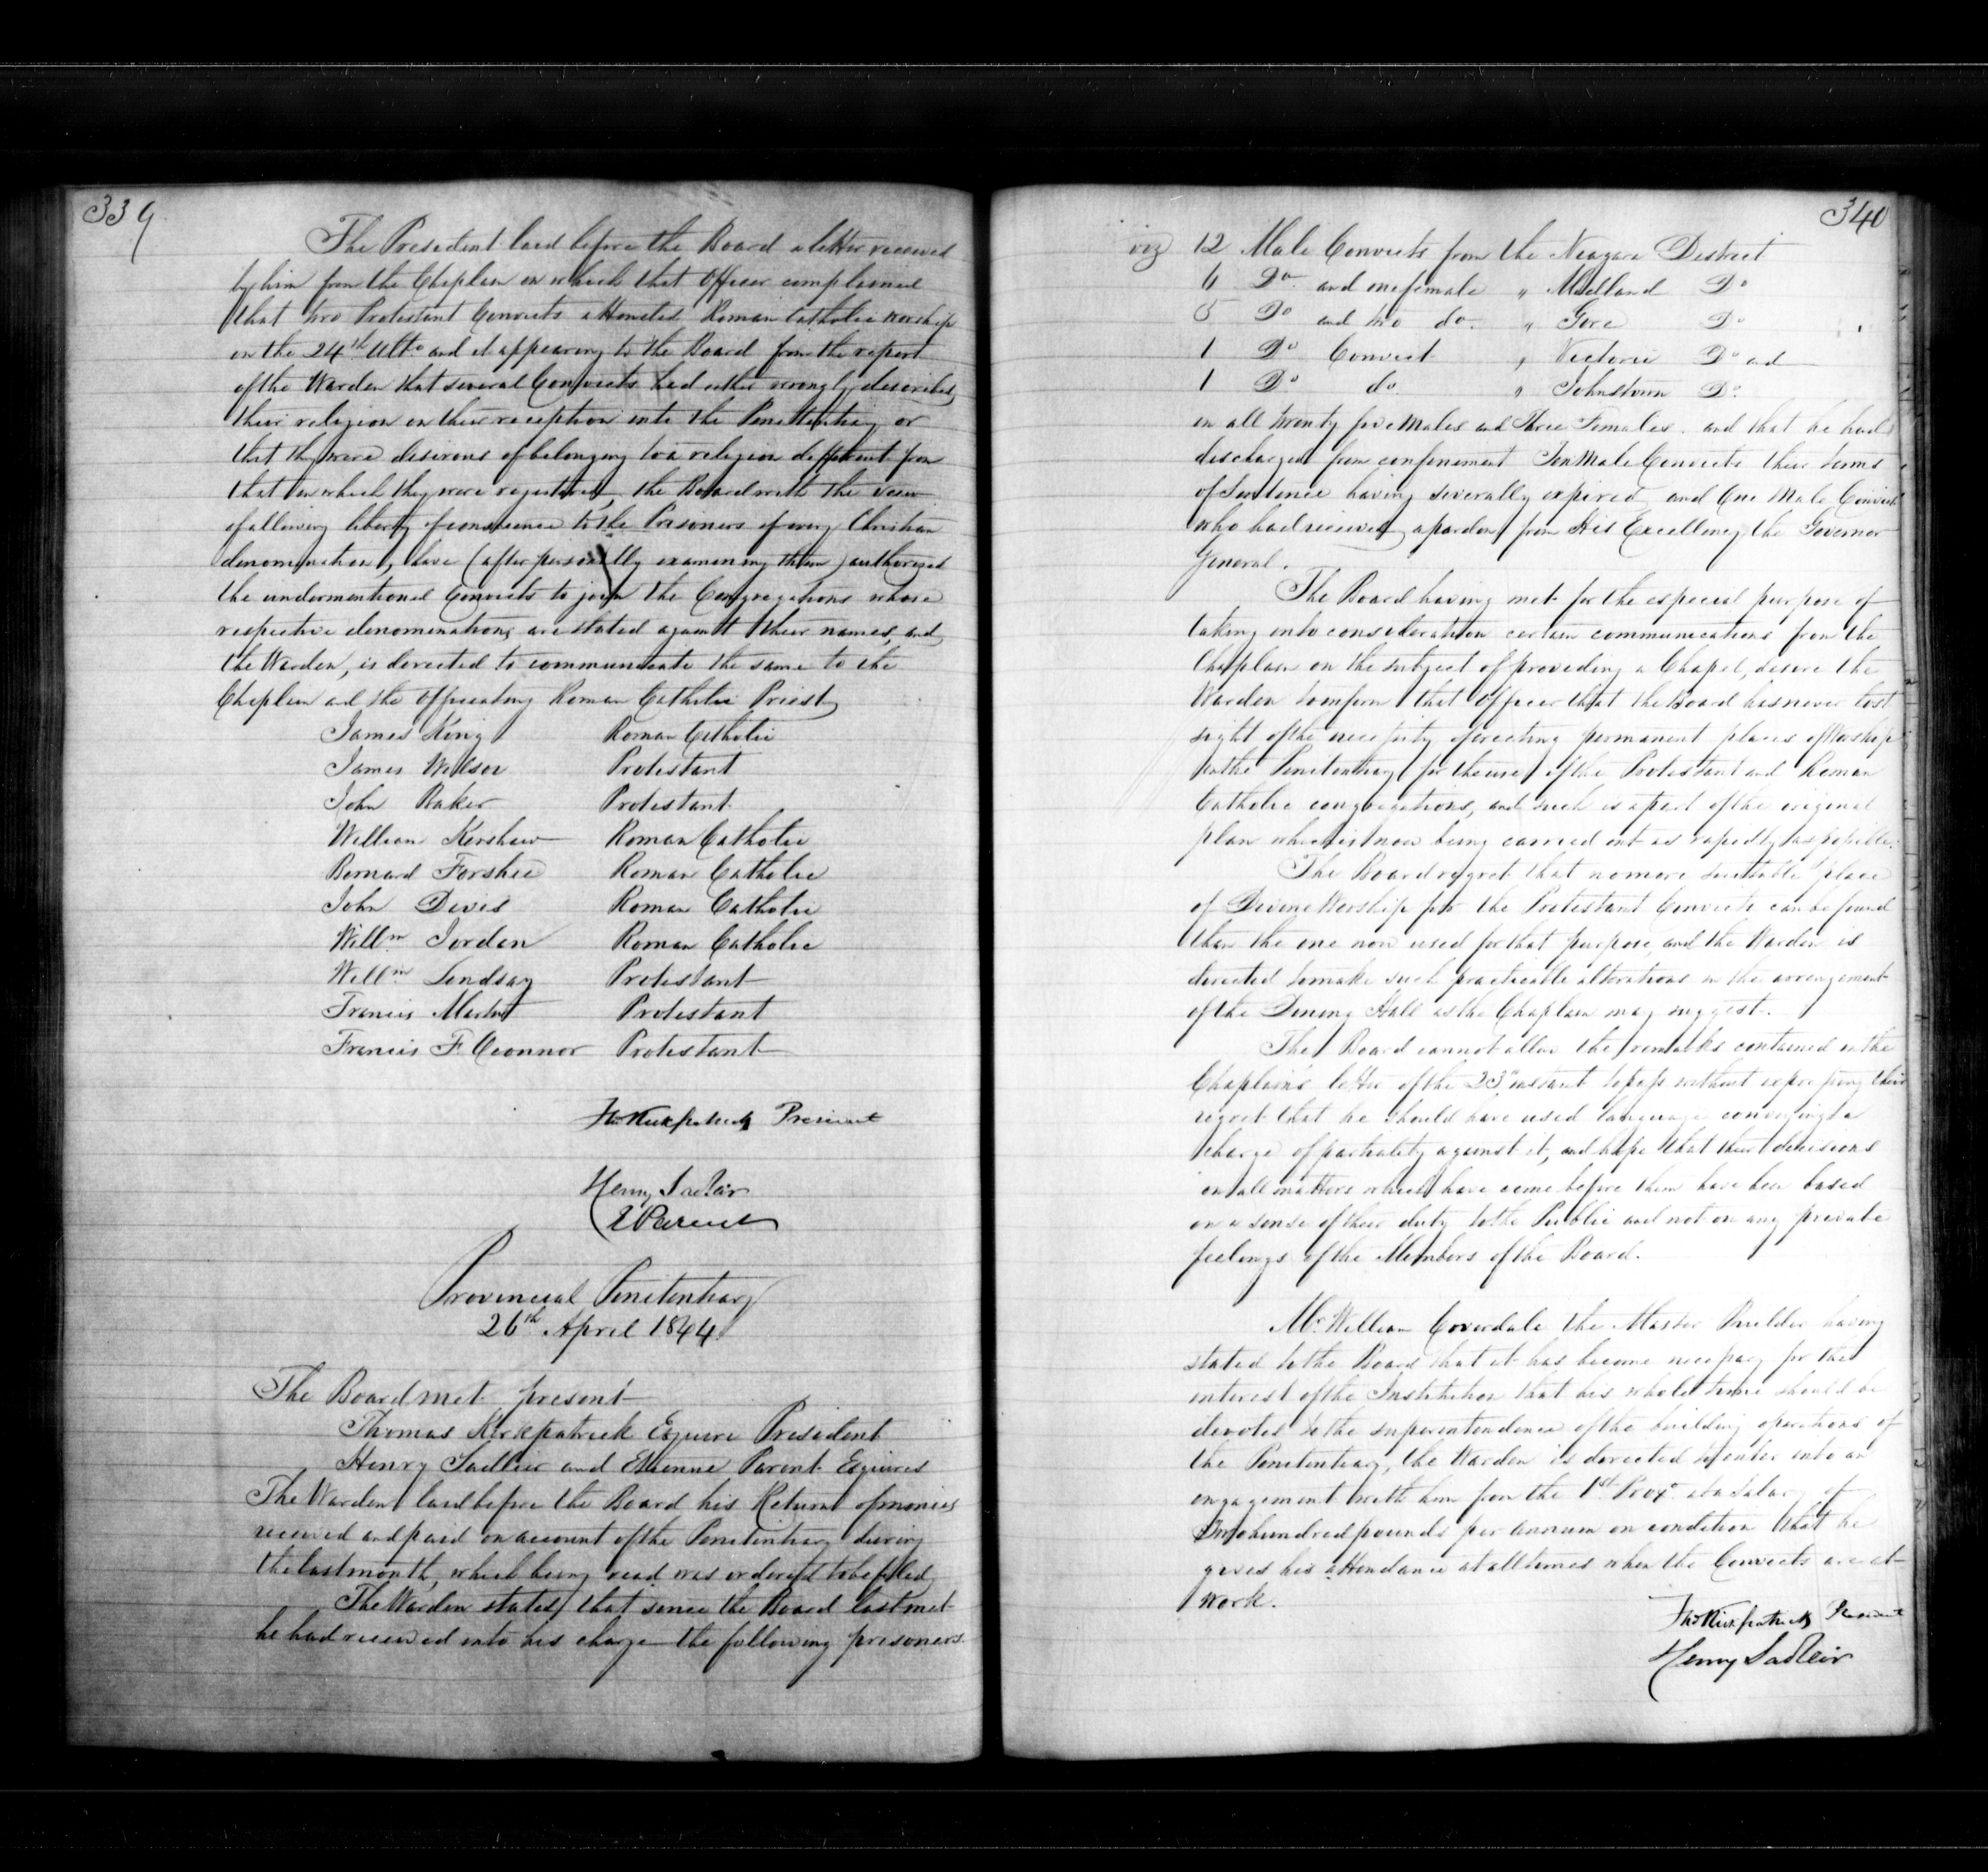 339
The President laid before the Board a letter received
by him from the Chaplain in which that Officer complained
that two Protestant Convicts attended Roman Catholic worship
on the 24th Ulto and it appearing to the Board from the report
of the Warden that several Convicts had either wrongly described
their religion on their reception into the Penitentiary or
that they were desirous of belonging to a religion different from
that in which they were registered, the Board with the view
of allowing liberty of conscience to the Prisoners of every Christian
denomination, have (after personally examining them) authorized
the undermentioned Convicts to join the Congregations whose
respective denominations are stated against their names, and
the Warden, is directed to communicate the same to the
Chaplain and the Officiating Roman Catholic Priest
James King Roman Catholic
James Wilson Protestant
John Baker Protestant
William Kershaw Roman Catholic
Bernard Forshee Roman Catholic
John Davis Roman Catholic
Willm Jordan Roman Catholic
Willm Lindsay Protestant
Francis Martin Protestant
Francis F. Oconnor Protestant
Thos Kirkpatrick President
Henry Sadleir
E Parent
Provincial Penitentiary
26th April 1844
The Board met present
Thomas Kirkpatrick Esquire President
Henry Sadleir and Etienne Parent Esquires
The Warden laid before the Board his Return of monies
received and paid on account of the Penitentiary during
the last month, which being read was ordered to be filed
The Warden states that since the Board last met
he had received into his charge the following prisoners
340
viz 12 Male Convicts from the Niagara District
6 Do and one female " Midland Do
5 Do and two do. " Gore Do
1 Do Convict " Victoria Do and
1 Do do. " Johnstown Do.
in all twenty five Males and Three Females. and that he had
discharged from confinement Ten Male Convicts their terms
of Sentence having severally expired, and One Male Convict
who had received a pardon from His Excellency the Governor
General.
The Board having met for the especial purpose of
taking into consideration certain communications from the
Chaplain on the subject of providing a Chapel, desire the
Warden to inform that Officer that the Board has never lost
sight of the necessity of erecting permanent places of Worship
in the Penitentiary for the use of the Protestant and Roman
Catholic congregations, and such is a part of the original
plan which is now being carried out as rapidly as possible.
The Board regret that no more suitable place
of Divine Worship for the Protestant Convicts can be found
than the one now used for that purpose, and the Warden is
directed to make such practicable alterations in the arrangement
of the Dining Hall as the Chaplain may suggest.
The Board cannot allow the remarks contained in the
Chaplain's letter of the 23d instant to pass without expressing their
regret that he should have used language conveying a
charge of partiality against it, and hope that their decisions
in all matters which have come before them have been based
on a sense of their duty to the Public and not on any private
feelings of the Members of the Board.
Mr. William Coverdale the Master Builder having
stated to the Board that it has become necessary for the
interest of the Institution that his whole time should be
devoted to the superintendence of the building operations of
the Penitentiary, the Warden is directed to enter into an
engagement with him from the 1st Proxo. at a Salary of
Two hundred pounds per annum on condition that he
gives his attendance at all times when the Convicts are at
work.
Thos Kirkpatrick President
Henry Sadleir